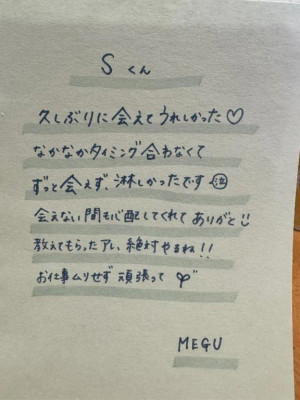 Sくん
久しぶりに会えてうれしかった♡
なかなかタイミング合わなくて
ずっと会えず、淋しかったです㊣
会えない間も心配してくれてありがと!!
教えてもらったアレ、絶対やるね!!
お仕事ムリせず頑張って
MEGU